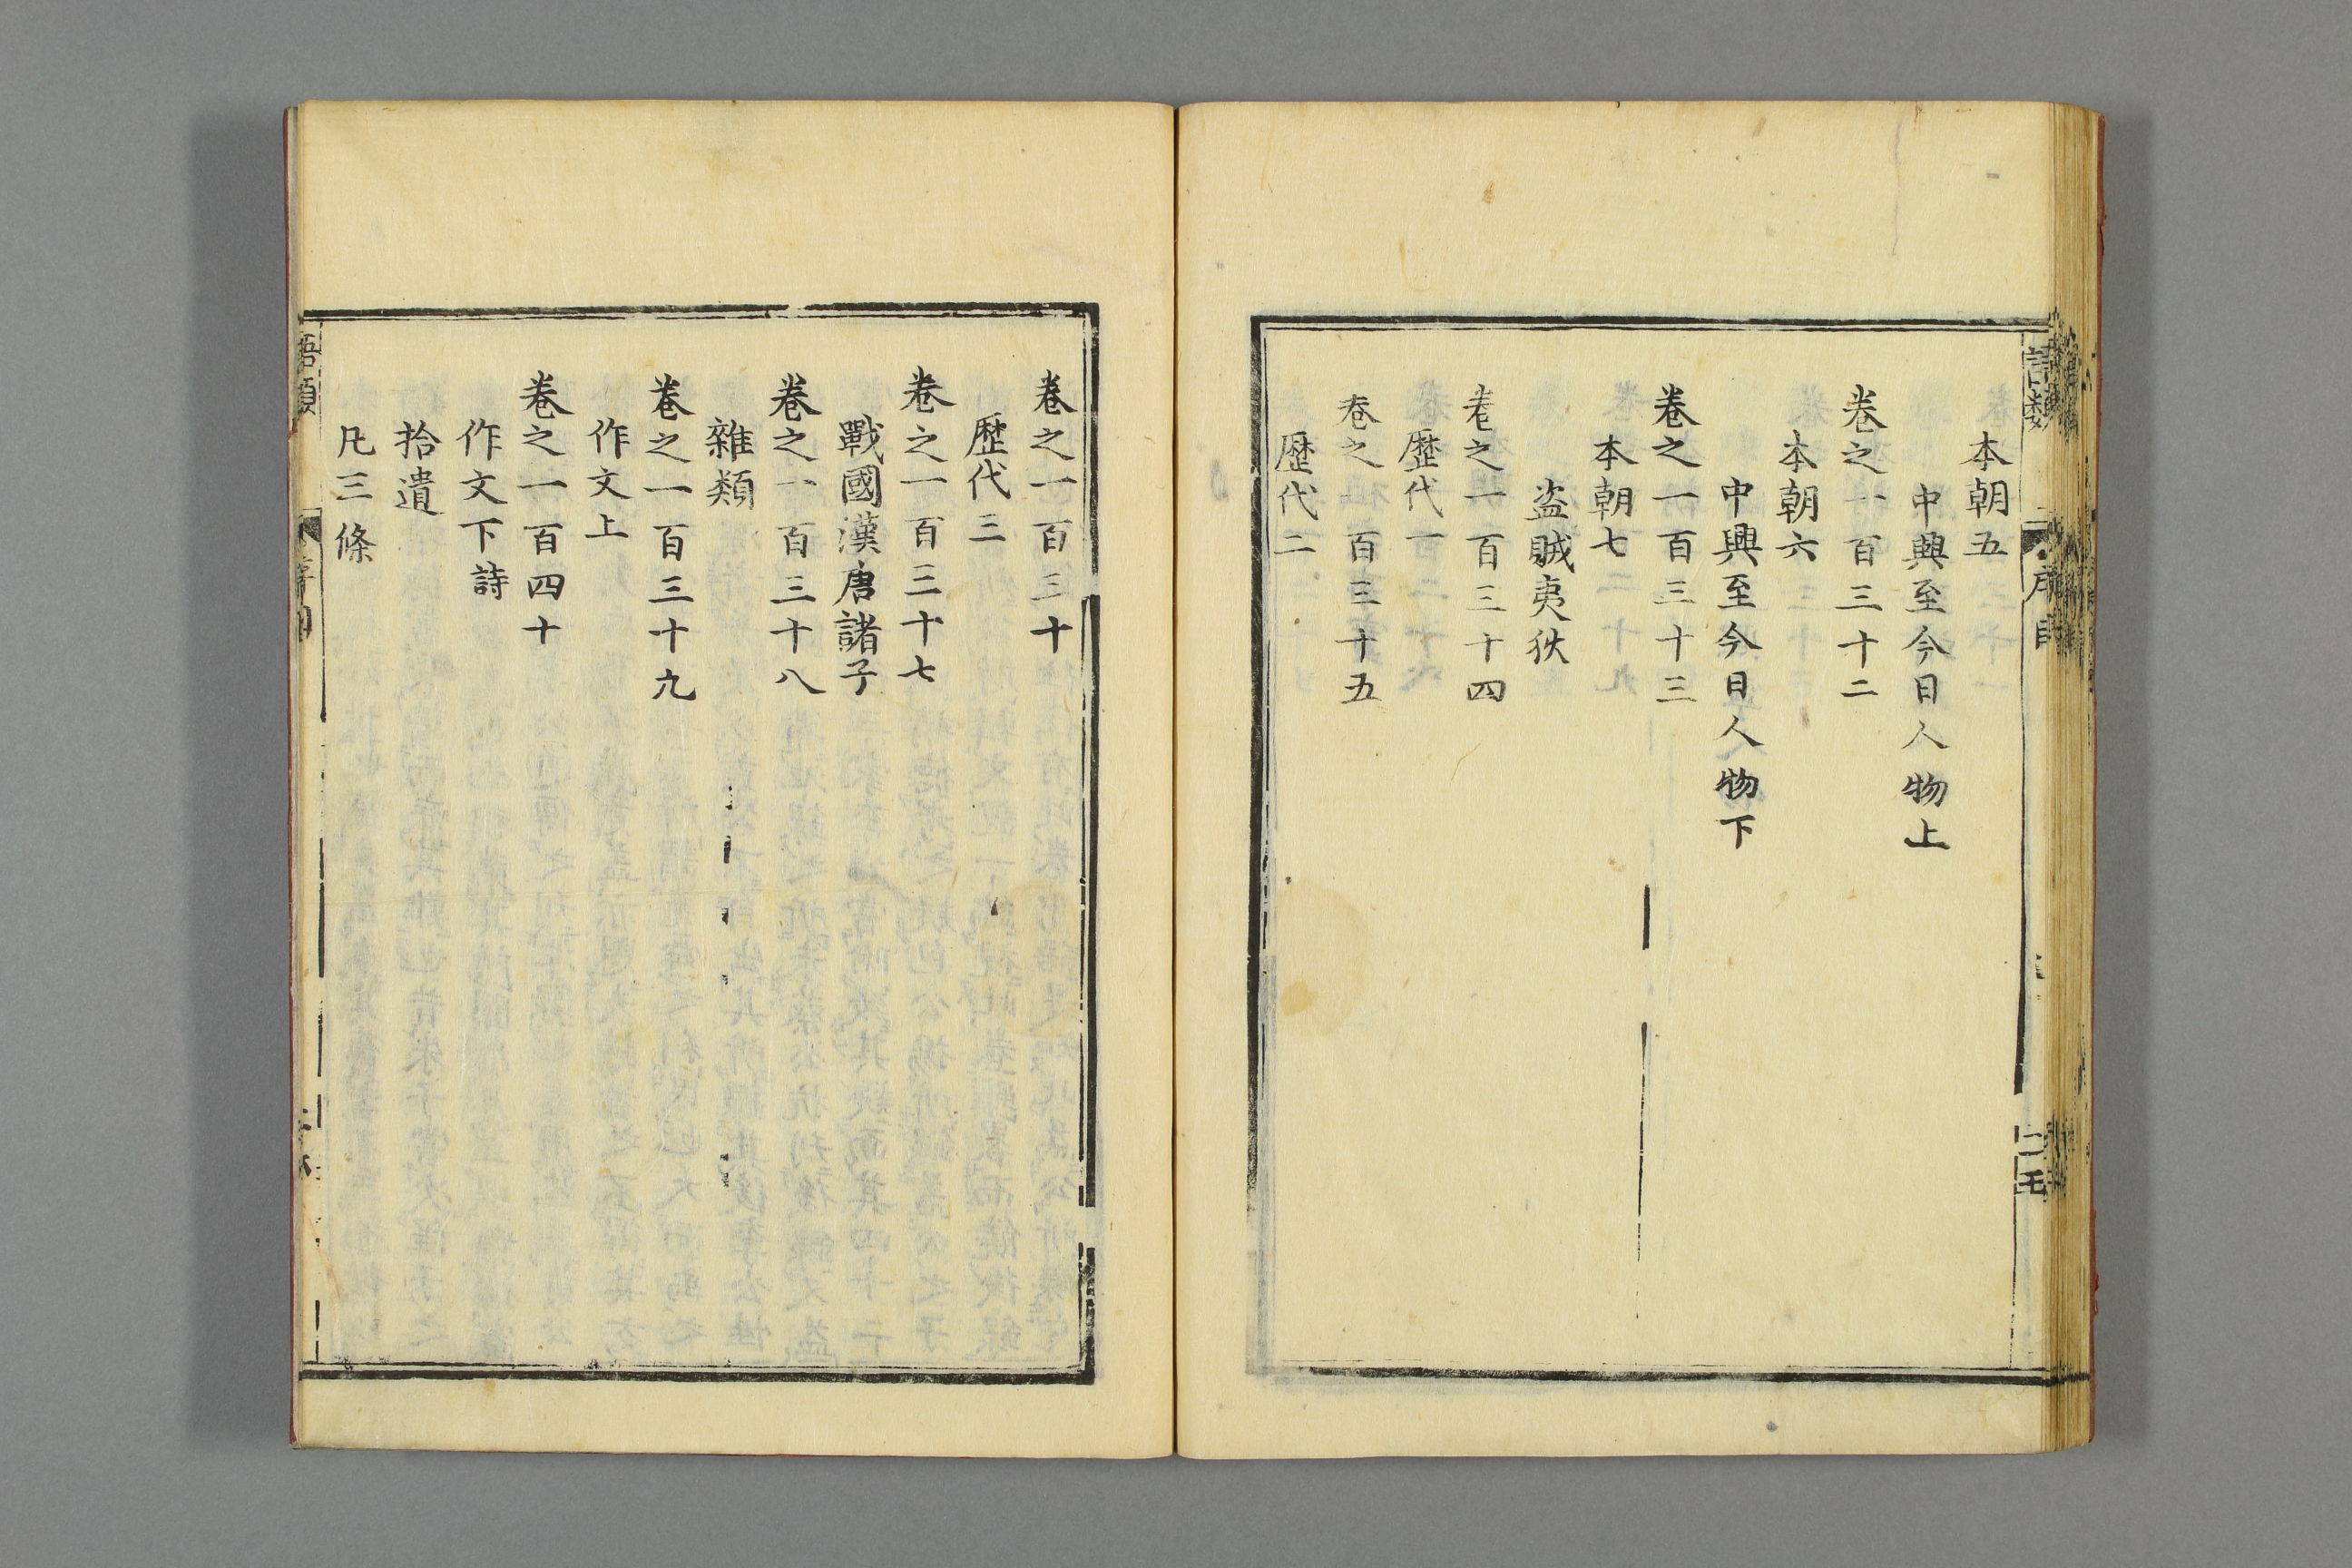 本朝五
中興至今日人物上
卷之一百三十二
本朝六
中興至今日人物下
卷之一百三十三
本朝七
盜賊夷狄
卷之一百三十四
歷代一
卷之一百三十五
歷代二
卷之一百三十
歷代三
卷之一百三十七
戰國漢唐諸子
卷之一百三十八
雜類
卷之一百三十九
作文上
卷之一百四十
作文下 詩
拾遺
凡三條
語類